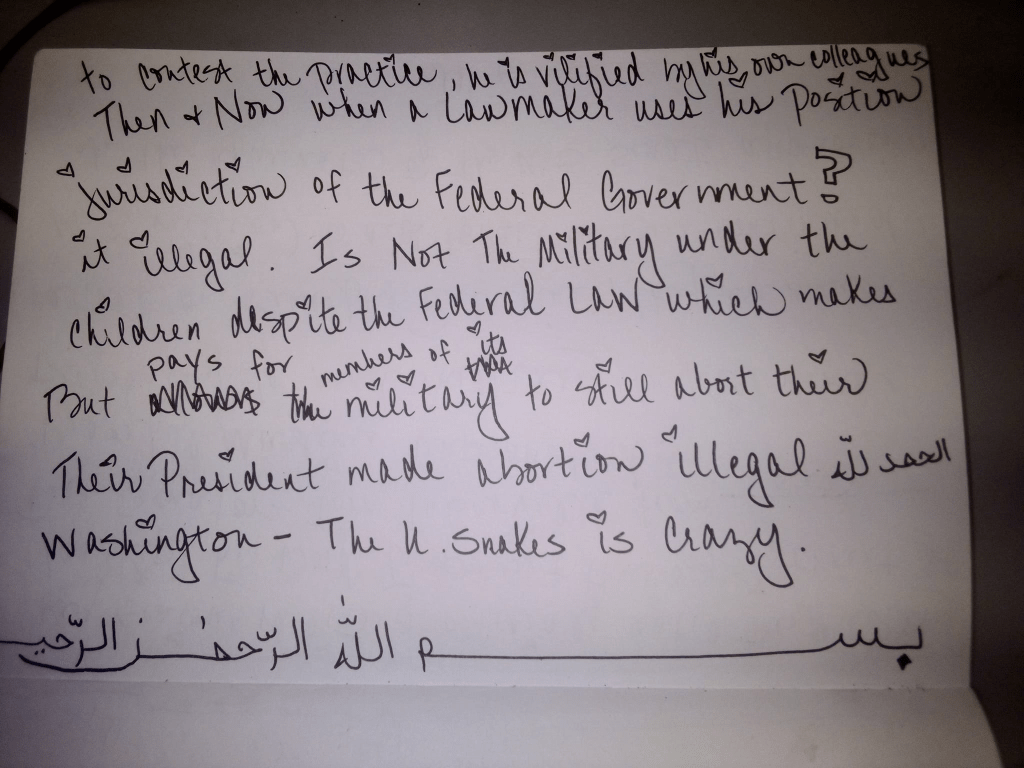 to contest the practice, he is vilified by his own colleagues
Then & Now when a Lawmaker uses his Position
jurisdiction of the Federal Government?
it illegal. Is Not The Military under the
children despite the Federal Law which makes
pays for members of its
But the military to still abort their
Their President made abortion illegal الحمد لله
Washington - The U. Snakes is Crazy.
بسم اللّٰه الرّحمٰن الرّحيم